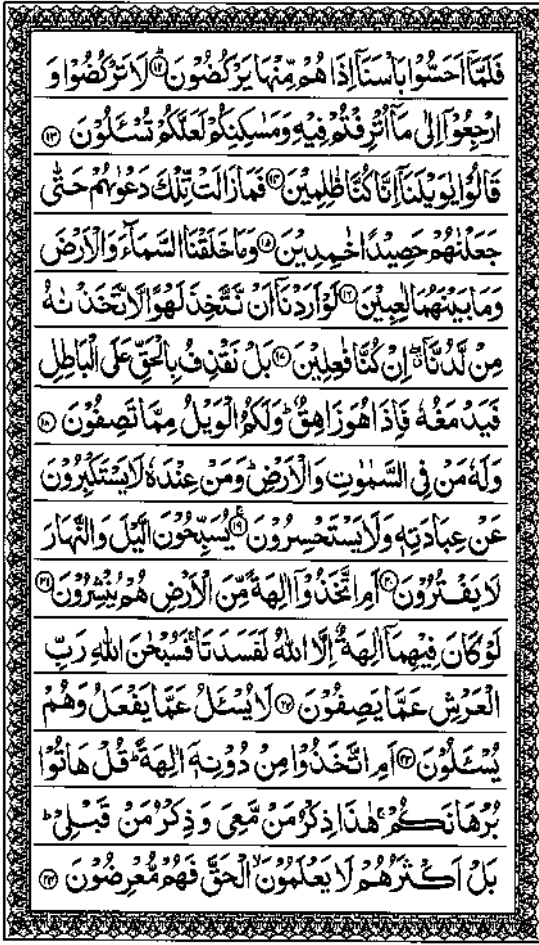 فَلَمَّاۤ اَحَسُّوْا بَاْسَنَاۤ اِذَا هُمْ مِّنْهَا یَرْكُضُوْنَ ۟ؕ۱۲ لَا تَرْكُضُوْا وَ
ارْجِعُوْۤا اِلٰی مَاۤ اُتْرِفْتُمْ فِیْهِ وَمَسٰكِنِكُمْ لَعَلَّكُمْ تُسْـَٔلُوْنَ ۱۳
قَالُوْا یٰوَیْلَنَاۤ اِنَّا كُنَّا ظٰلِمِیْنَ ۱۴ فَمَا زَالَتْ تِّلْكَ دَعْوٰىهُمْ حَتّٰی
جَعَلْنٰهُمْ حَصِیْدًا خٰمِدِیْنَ ۱۵ وَمَا خَلَقْنَا السَّمَآءَ وَالْاَرْضَ
وَمَا بَیْنَهُمَا لٰعِبِیْنَ ۱۶ لَوْ اَرَدْنَاۤ اَنْ نَّتَّخِذَ لَهْوًا لَّاتَّخَذْ نٰهُ
مِنْ لَّدُنَّاۤ ۖۗ اِنْ كُنَّا فٰعِلِیْنَ ۱۷ بَلْ نَقْذِفُ بِالْحَقِّ عَلَی الْبَاطِلِ
فَیَدْ مَغُهٗ فَاِذَا هُوَ زَاهِقٌ ؕ وَلَكُمُ الْوَیْلُ مِمَّا تَصِفُوْنَ ۱۸
وَلَهٗ مَنْ فِی السَّمٰوٰتِ وَالْاَرْضِ ؕ وَمَنْ عِنْدَهٗ لَا یَسْتَكْبِرُوْنَ
عَنْ عِبَادَتِهٖ وَلَا یَسْتَحْسِرُوْنَ ۚ۱۹ یُسَبِّحُوْنَ الَّیْلَ وَالنَّهَارَ
لَا یَفْتُرُوْنَ ۲۰ اَمِ اتَّخَذُوْۤا اٰلِهَةً مِّنَ الْاَرْضِ هُمْ یُنْشِرُوْنَ ۲۱
لَوْ كَانَ فِیْهِمَاۤ اٰلِهَةٌ اِلَّا اللّٰهُ لَفَسَدَتَا ۚ فَسُبْحٰنَ اللّٰهِ رَبِّ
الْعَرْشِ عَمَّا یَصِفُوْنَ ۲۲ لَا یُسْـَٔلُ عَمَّا یَفْعَلُ وَهُمْ
یُسْـَٔلُوْنَ ۲۳ اَمِ اتَّخَذُوْا مِنْ دُوْنِهٖۤ اٰلِهَةً ؕ قُلْ هَاتُوْا
بُرْهَانَكُمْ ۚ هٰذَا ذِكْرُ مَنْ مَّعِیَ وَ ذِكْرُ مَنْ قَبْلِیْ ؕ
بَلْ اَكْثَرُهُمْ لَا یَعْلَمُوْنَ ۙ الْحَقَّ فَهُمْ مُّعْرِضُوْنَ ۲۴